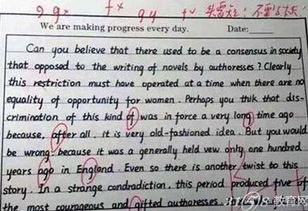 We are making progress every day. Date:
Can you believe that there used to be a consensus in society
that opposed to the writing of novels by authoresses? Clearly
this restriction must have operated at a time when there are no
equality of opportunity for women. Perhaps you thik that dis-
crimination of this kind of was in force a very long time ago
because, after all, it is very old-fashioned idea. But you would
be wrong, because it was a generally held vew only one hundred
years ago in England. Even so there is another twist to this
story. In a strange condradiction, this period produced five of
the most courageous and gifted authoresses